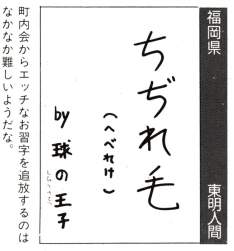 福岡県　東明人間
ちぢれ毛
(へべれけ)
by 球の王子
町内会からエッチなお習字を追放するのは
なかなか難しいようだな。